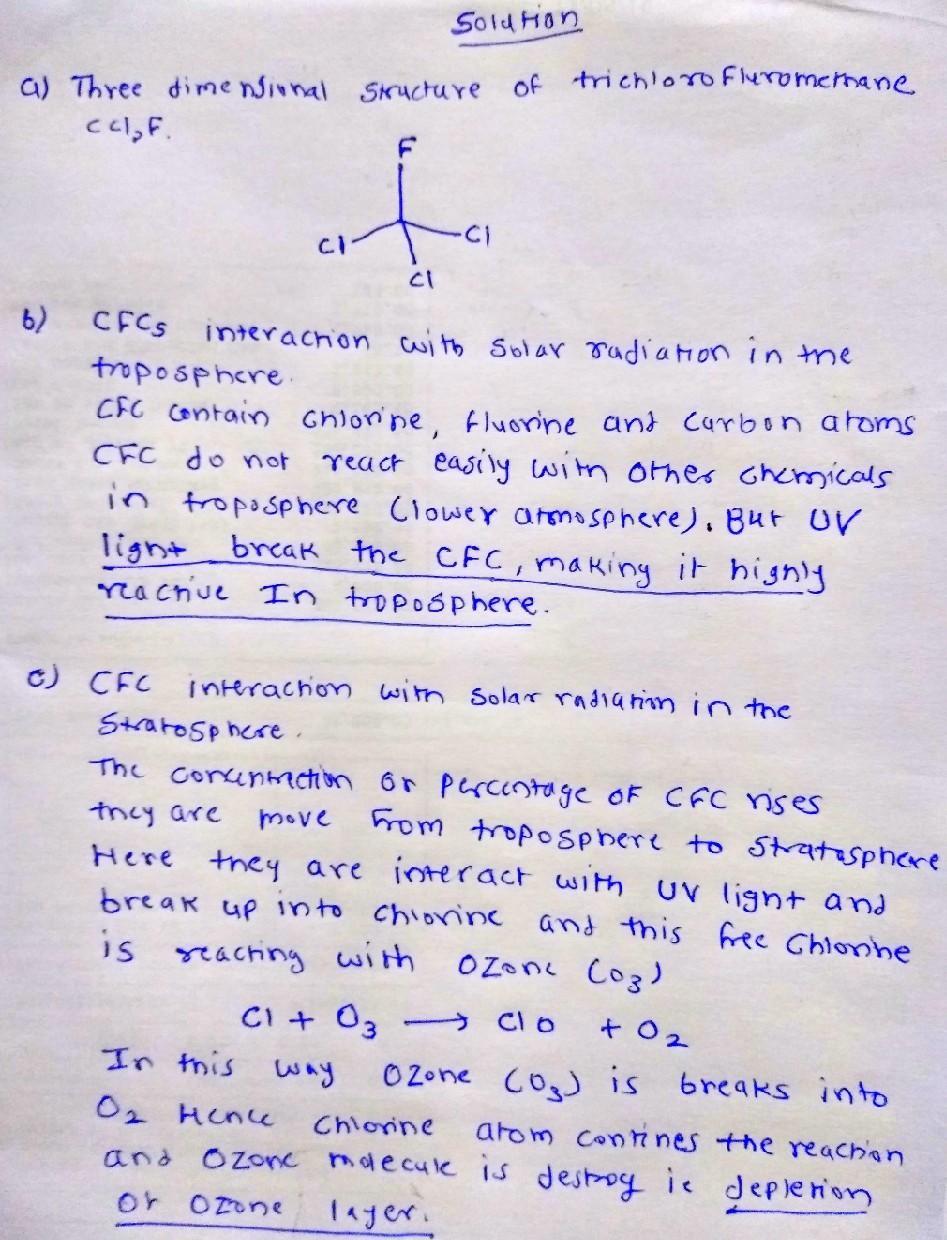 Solution
a) Three dimensional structure of trichlorofluromethane
CCl3F.
F
Cl Cl
Cl
b) CFCs interaction with Solar radiation in the
troposphere.
CFC contain chlorine, fluorine and Carbon atoms
CFC do not react easily with other chemicals
in troposphere (lower atmosphere). But UV
light break the CFC, making it highly
reactive In troposphere.
c) CFC interaction with solar radiation in the
Stratosphere.
The concentraction or Percentage of CFC rises
they are move from troposphere to Stratosphere
Here they are interact with UV light and
break up into chlorine and this free Chlorine
is reacting with Ozone (O3)
Cl + O3 → ClO + O2
In this way Ozone (O3) is breaks into
O2 Hence Chlorine atom contines the reaction
and Ozone molecule is destroy ie depletion
of Ozone layer.